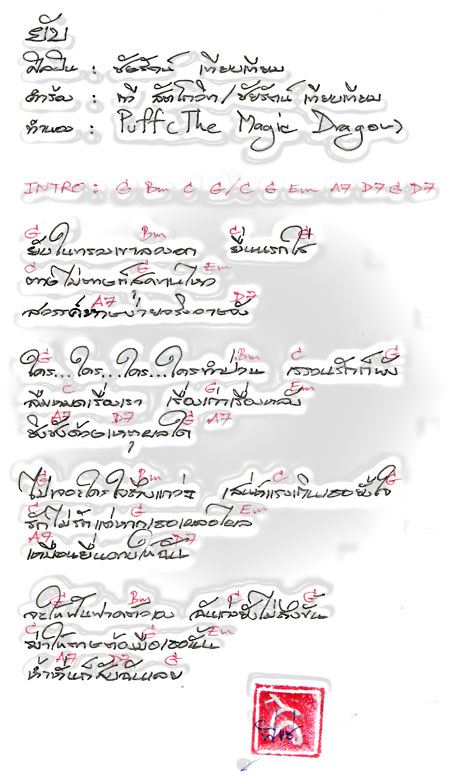 ยับ
ศิลปิน : ชัยรัตน์ เทียบเทียม
คำร้อง : ทวี / ชัยรัตน์ เทียบเทียม
ทำนอง : Puff (The Magic Dragon)
INTRO : G Bm C G/C G Em A7 D7 G D7
G Bm C G
ยับในทรวงเขาลวงอก ยื่นนรกให้
C G Em
ตายไม่ตายก็สุดทนไหว
A7 D7
G Bm C G
ใคร...ใคร...ใคร...ใครทำป่วน
C G Em
ลืมหมดเรื่องเรา เรื่องเก่าเรื่องหลัง
A7 D7 G A7
ชิงชังด้วยเหตุผลใด
G Bm C G
ไปเจอะใครใจ เสน่ห์แรงเกินเธอยั้งใจ
C G Em
รักไม่รักแต่หากเธอเผลอไผล
A7 D7
เหมือนยื่นดาบให้ฉัน
G Bm C G
จะให้ฟันฟาดตัวเอง ฉันเก่งยังไม่ถึงขั้น
C G Em
ฆ่าให้ตายด้วยมือเธอนั้น
A7 D7 G
ห้ำหั่นก็สับฉันเลย